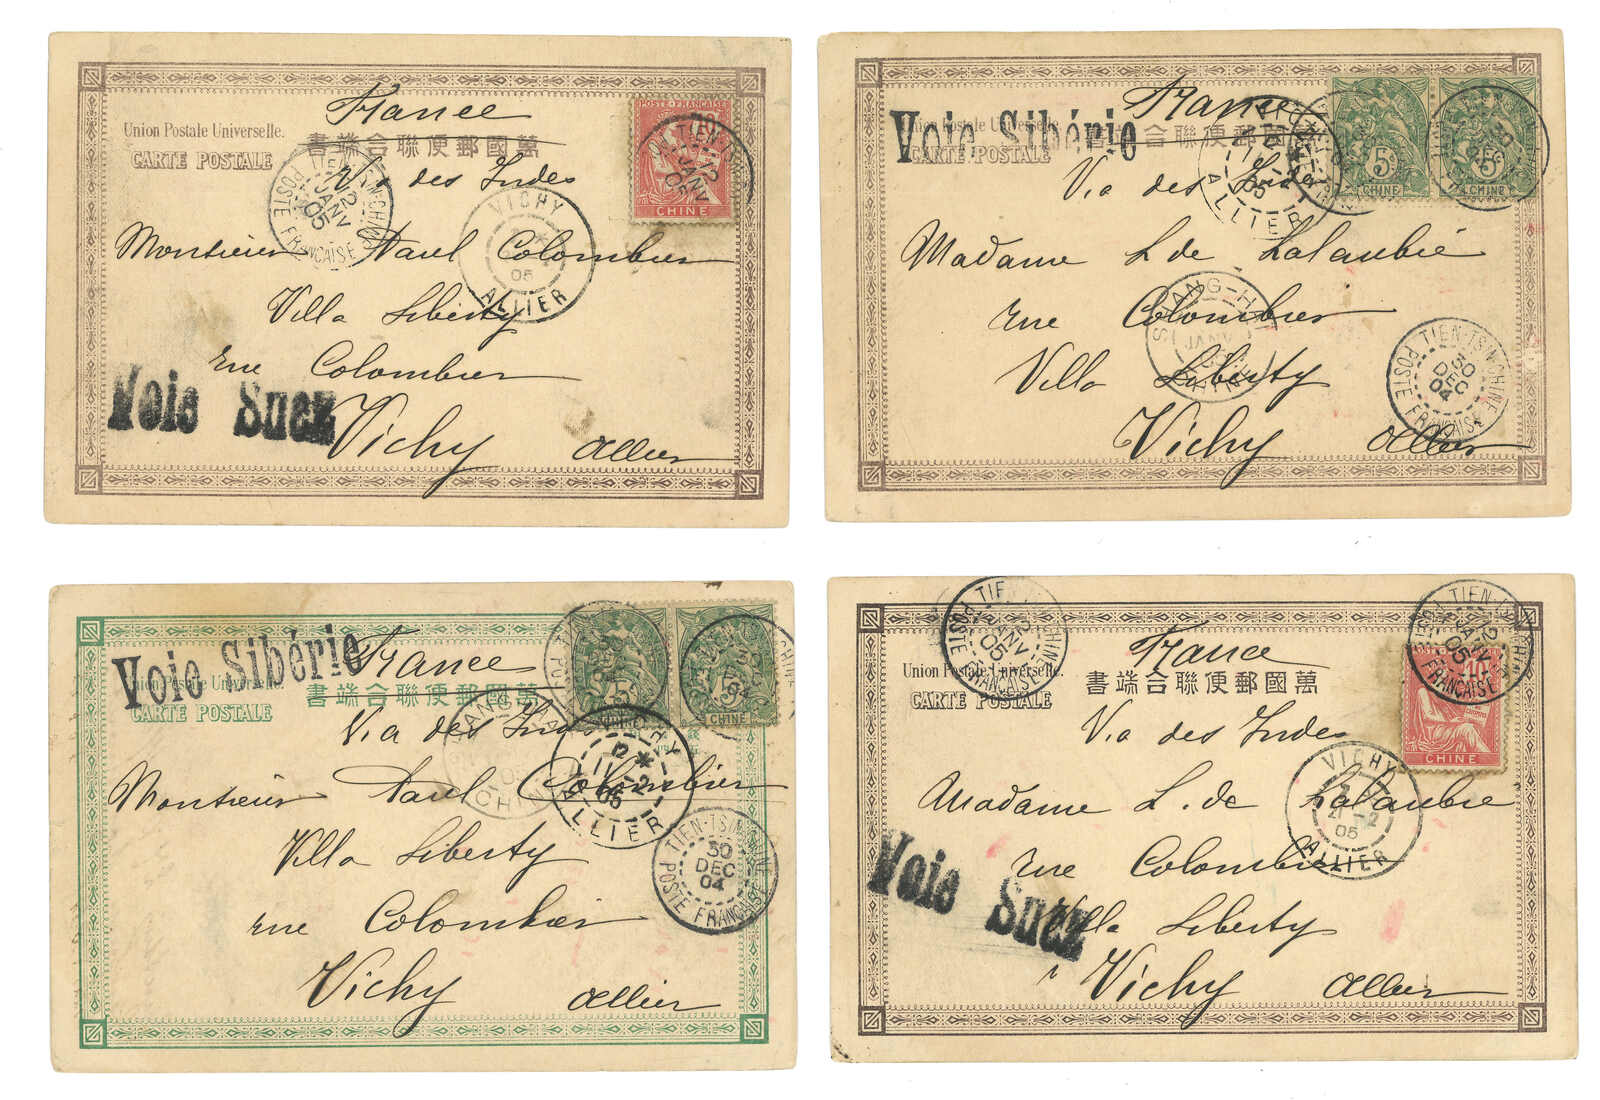 France
Union Postale Universelle.
書端合聯便郵國萬
CARTE POSTALE
Via des Indes
Monsieur Paul Colombier
Villa Liberty
rue Colombier
Vichy Allier
Voie Suez
POSTE FRANÇAISE
CHINE
TIEN-TSIN-CHINE
12 JANV 05
POSTE FRANÇAISE
TIEN-TSIN
12 JANV 05
VICHY
05
ALLIER
France
Voie Sibérie
書端合聯便郵國萬
CARTE POSTALE
Via des Indes
Madame L de Lalaubie
rue Colombier
Villa Liberty
Vichy Allier
5c
CHINE
5c
CHINE
11-2
05
ALLIER
SHANG-HAI
JANV
CHINE
TIEN-TSIN-CHINE
30 DEC 04
POSTE FRANÇAISE
Voie Sibérie
France
書端合聯便郵國萬
CARTE POSTALE
Via des Indes
Monsieur Paul Colombier
Villa Liberty
rue Colombier
Vichy Allier
CHINE
VICHY
11-2
05
ALLIER
CHINE
TIEN-TSIN-CHINE
30 DEC 04
POSTE FRANÇAISE
France
Union Postale Universelle.
書端合聯便郵國萬
CARTE POSTALE
Via des Indes
Madame L. de Lalaubie
rue Colombier
Villa Liberty
Vichy Allier
Voie Suez
TIEN-TSIN-CHINE
12 JANV 05
POSTE FRANÇAISE
TIEN-TSIN-CHINE
12 JANV 05
POSTE FRANÇAISE
10
CHINE
VICHY
21-2
05
ALLIER